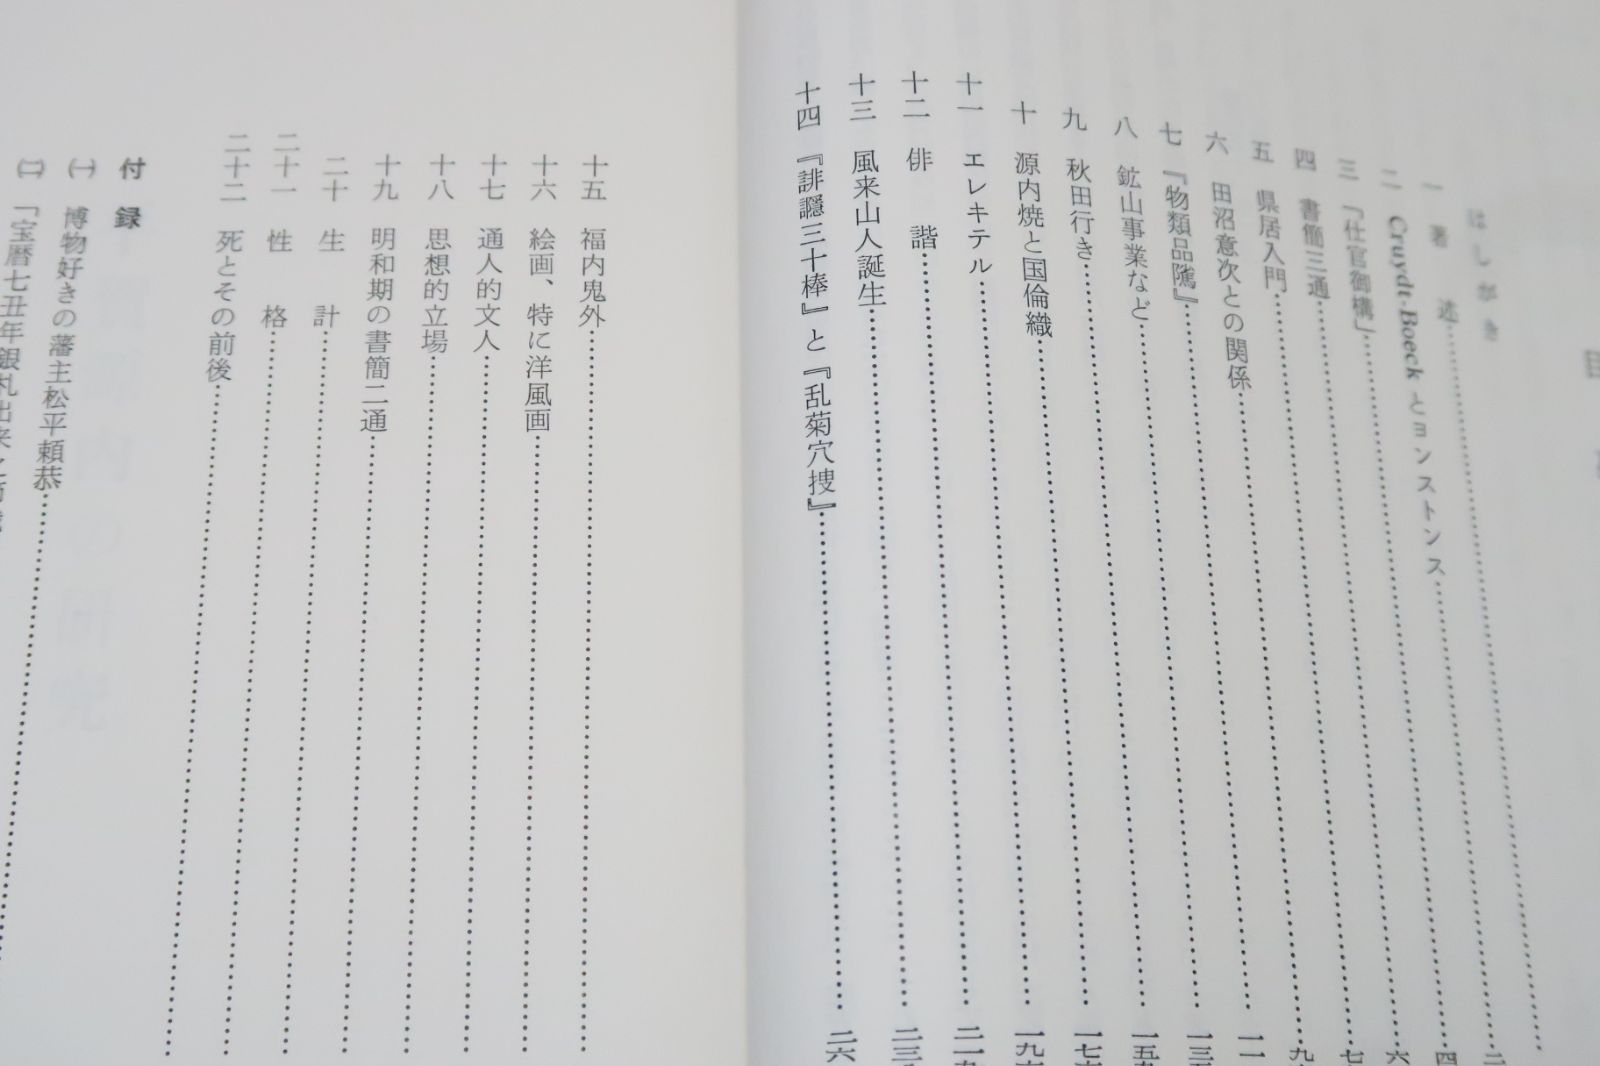 目
はしがき
一 著述
二 Cruydt-Boeck とヨンストンス
三 「仕官御構」
四 書簡三通
五 県居入門
六 田沼意次との関係
七 『物類品隲』
八 鉱山事業など
九 秋田行き
十 源内焼と国倫織
十一 エレキテル
十二 俳諧
十三 風来山人誕生
十四 『誹諧三十棒』と『乱菊穴捜』
十五 福内鬼外
十六 絵画、特に洋風画
十七 通人的文人
十八 思想的立場
十九 明和期の書簡二通
二十 生計
二十一 性格
二十二 死とその前後
付録
㈠ 博物好きの藩主松平頼恭
㈡ 「宝暦七丑年銀札出来之